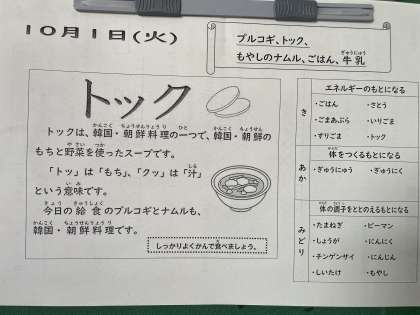 10月1日(火)
プルコギ、トック、
もやしのナムル、ごはん、牛乳
トック
トックは、韓国・朝鮮料理の一つで、韓国・朝鮮の
もちと野菜を使ったスープです。
「トッ」は「もち」、「クッ」は「汁」
という意味です。
今日の給食のプルコギとナムルも、
韓国・朝鮮料理です。
しっかりよくかんで食べましょう。
き
エネルギーのもとになる
・ごはん ・さとう
・ごまあぶら ・いりごま
・すりごま ・トック
あか
体をつくるもとになる
・ぎゅうにゅう ・ぎゅうにく
みどり
体の調子をととのえるもとになる
・たまねぎ ・ピーマン
・しょうが ・にんにく
・チンゲンサイ ・にんじん
・しいたけ ・もやし